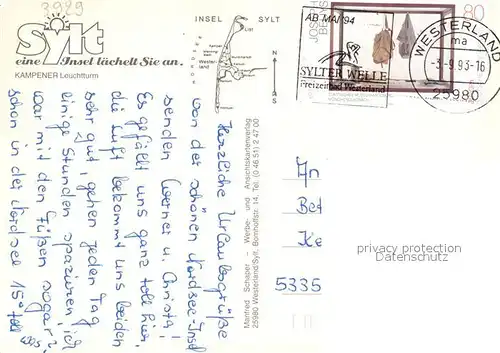 3929
Sylt
eine Insel lächelt Sie an.
KAMPENER Leuchtturm
INSEL SYLT
List
Kampen
Westerland
Herzliche Urlaubsgrüße
von der schönen Nordsee-Insel
senden Werner u. Christa!
Es gefällt uns ganz toll hier,
die Luft bekommt uns beiden
sehr gut, gehen jeden Tag
einige Stunden spazieren, ich
war mit den Füßen sogar
schon in der Nordsee 15°
Manfred Schaper - Werbe- und Ansichtskartenverlag
25980 Westerland/Sylt, Bomhoffstr. 14, Tel. (0 46 51) 2 47 00
AB MAI 94
SYLTER WELLE
Freizeitbad Westerland
JOSEPH BEUYS
80
WESTERLAND
ma
-3.-9.93-16
25980
An
Bet
Ke
5335
privacy protection
Datenschutz